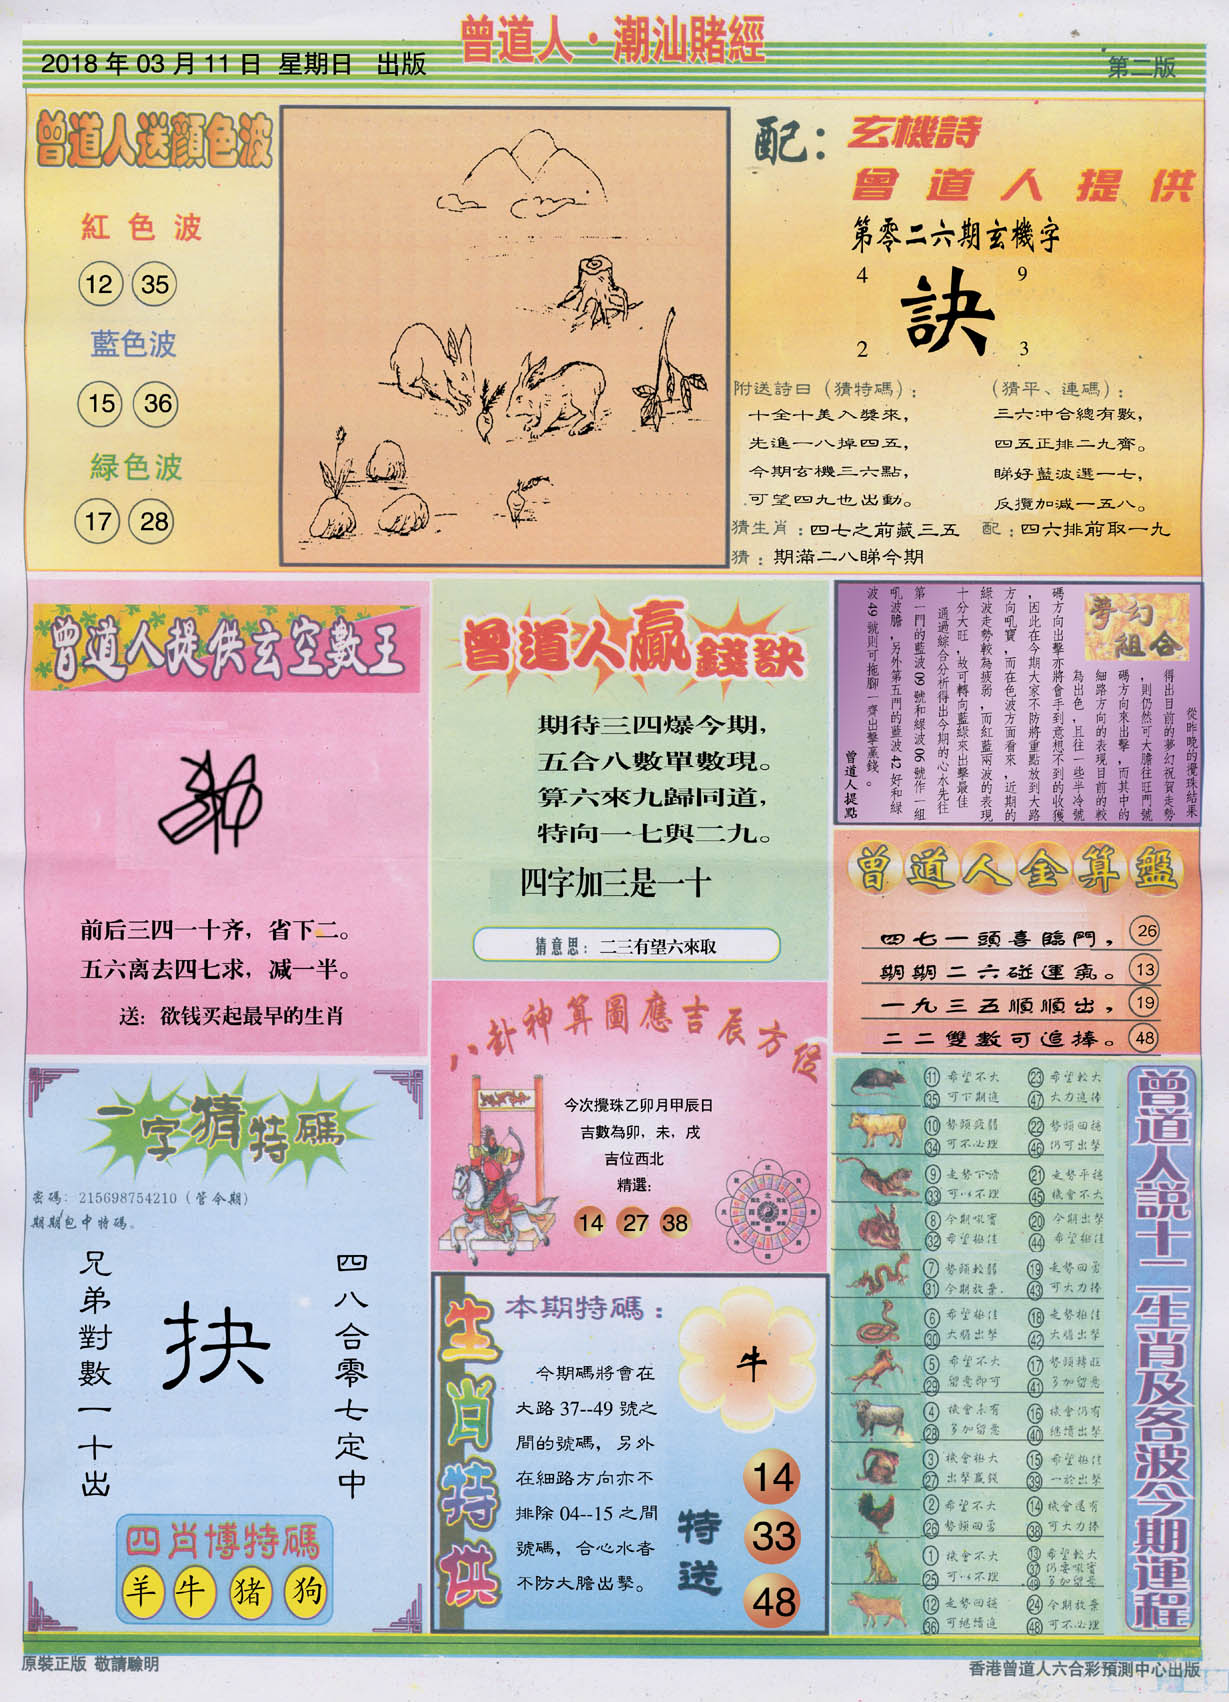 曾道人·潮汕賭經
2018 年 03 月 11 日 星期日 出版
第二版
曾道人送顏色波
紅色波
12 35
藍色波
15 36
緑色波
17 28
配：
玄機詩
曾道人提供
第零二六期玄機字
4 9
訣
2 3
附送詩曰（猜特碼）：
十全十美入獎來，
先進一八掉四五，
今期玄機三六點，
可望四九也出動。
（猜平、連碼）：
三六冲合總有數，
四五正排二九齊。
睇好藍波選一七，
反攬加減一五八。
猜生肖：四七之前藏三五
配：四六排前取一九
猜：期滿二八睇今期
曾道人提供玄空數王
前后三四一十齐，省下二。
五六离去四七求，减一半。
送：欲钱买起最早的生肖
曾道人贏錢訣
期待三四爆今期，
五合八數單數現。
算六來九歸同道，
特向一七與二九。
四字加三是一十
猜意思：二三有望六來取
夢幻組合
從昨晚的攪珠結果
得出目前的夢幻祝賀走勢
，則仍然可大膽往旺門號
碼方向來出擊，而其中的
細路方向的表現目前的較
為出色，且往一些半冷號
碼方向出擊亦將會手到意想不到的收獲
，因此在今期大家不防將重點放到大路
方向吼寶，而在色波方面看來，近期的
綠波走勢較為疲弱，而紅藍兩波的表現
十分大旺，故可轉向藍綠來出擊最佳
通過綜合分析得出今期的心水先往
第一門的藍波 09 號和綠波 06 號作一組
吼波膽，另外第五門的藍波 42 好和綠
波 49 號則可拖腳一齊出擊贏錢。
曾道人提點
曾道人金算盤
四七一頭喜臨門， 26
期期二六碰運氣。 13
一九三五順順出， 19
二二雙數可追捧。 48
八卦神算圖應吉辰方位
今次攪珠乙卯月甲辰日
吉數為卯，未，戌
吉位西北
精選：
14 27 38
一字猜特碼
密碼：215698754210（管令期）
期期包中特碼。
四八合零七定中
抉
兄弟對數一十出
四肖博特碼
羊 牛 猪 狗
生肖特供
本期特碼：
牛
今期碼將會在
大路 37--49 號之
間的號碼，另外
在細路方向亦不
排除 04--15 之間
號碼，合心水者
不防大膽出擊。
特送
14
33
48
曾道人説十二生肖及各波今期運程
11 希望不大 23 希望較大
35 可下期追 47 大力追捧
10 勢頭疲弱 22 勢頭回穩
34 可不必理 46 仍可出擊
9 走勢下滑 21 走勢平穩
33 可以不理 45 機會不大
8 今期吼寶 20 今期出擊
32 希望極佳 44 希望極佳
7 勢頭較弱 19 走勢回勇
31 今期放棄 43 可大力捧
6 希望極佳 18 走勢極佳
30 大膽出擊 42 大膽出擊
5 希望不大 17 勢頭轉旺
29 留意即可 41 多加留意
4 機會未有 16 機會仍有
28 多加留意 40 繼續出擊
3 機會極大 15 希望極佳
27 出擊贏錢 39 一於出擊
2 希望不大 14 機會還有
26 勢頭回勇 38 可大力捧
1 機會不大 13 希望較大
37 仍要吼寶
25 可以不理 49 多加留意
12 走勢回穩 24 今期放棄
36 可繼續追 48 可不必理
原裝正版 敬請驗明
香港曾道人六合彩預測中心出版